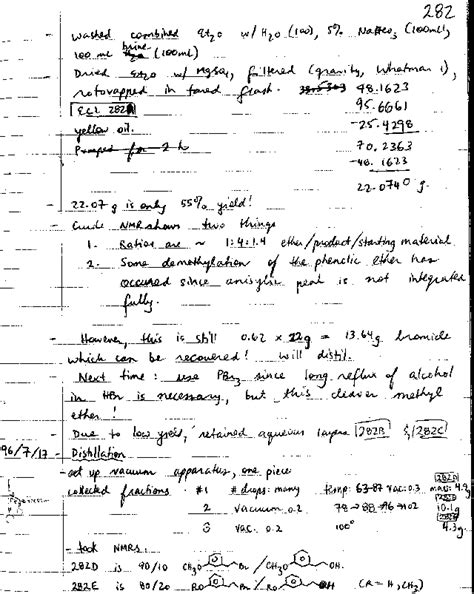 282
- washed combined Et2O w/ H2O (100), 5% NaHCO3 (100mL),
100 mL brine (100mL)
- Dried Et2O w/ MgSO4, filtered (gravity, Whatman 1),
rotovapped in tared flask. 48.1623
ECL 282A 95.6661
yellow oil. -25.4298
Pumped for 2 h 70.2363
-48.1623
22.0740 g.
- 22.07 g is only 55% yield!
- Crude NMR shows two things
1. Ratios are ~ 1:4:1.4 ether/product/starting material
2. Some demethylation of the phenolic ether has
occured since anisylic peak is not integrated
fully.
- However, this is still 0.62 x 22g = 13.64g bromide
which can be recovered! will distil.
Next time: use PBr3 since long reflux of alcohol
in HBr is necessary, but this cleaves methyl
ether!
- Due to low yield, retained aqueous layers 282B & 282C
96/7/17 - Distillation
- set up vacuum apparatus, one piece
collected fractions #1 # drops: many temp: 63-87 vac: 0.3 282D
2 vacuum 0.2 78 10.1g
3 vac. 0.2 100° 4.3g
- took NMRs:
282D is 90/10 CH3O Br / CH3O OH.
282E is 80/20 RO Br / RO OH (R = H, CH3)